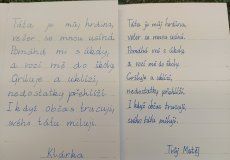 Táta je můj hrdina,
večer se mnou usíná.
Pomáhá mi s úkoly,
a vozí mě do školy.
Griluje a uklízí,
nedostatky přehlíží.
I když občas trucuji,
svého tátu miluji.
Klárka
Táta je můj hrdina,
večer se mnou usíná.
Pomáhá mi s úkoly
a vozí mě do školy.
Griluje a uklízí,
nedostatky přehlíží.
I když občas trucuji,
svého tátu miluji.
Tvůj Matěj